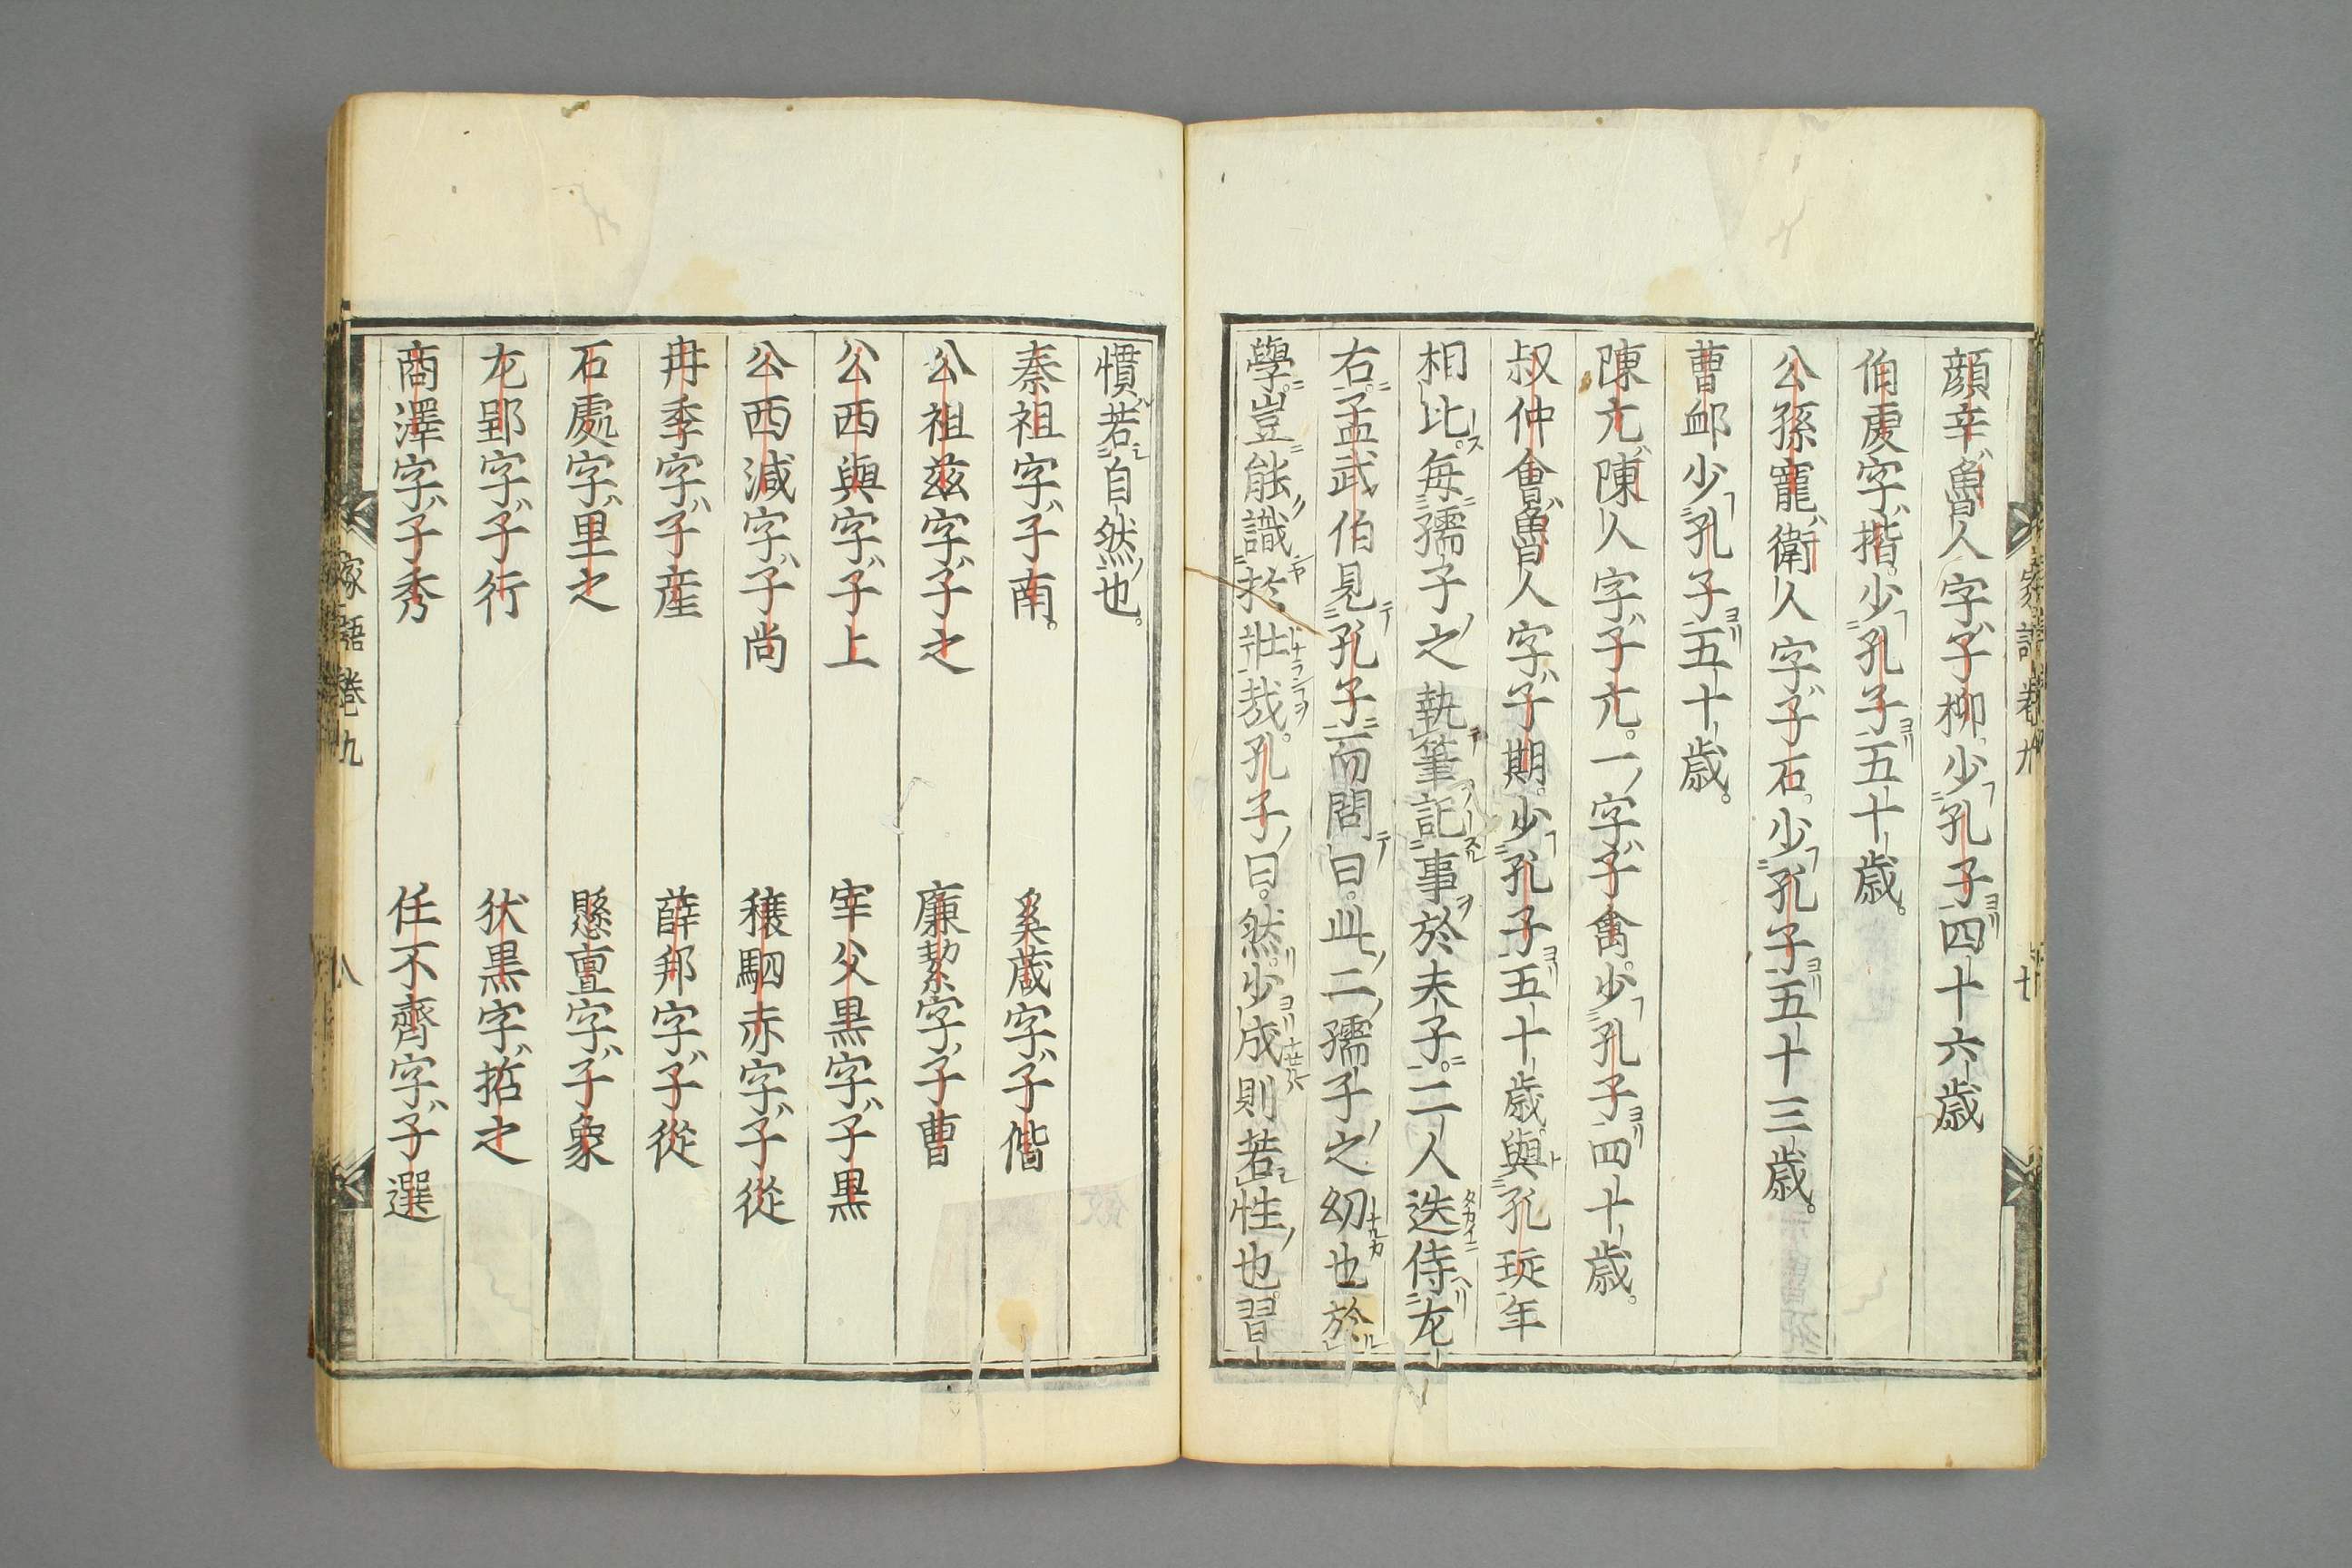 顔辛魯人字子柳少孔子四十六歳
伯䖍字揩少孔子五十歳。
公孫寵衛人字子石少孔子五十三歳。
曹卹少孔子五十歳。
陳亢陳人字子亢。一字子禽少孔子四十歳。
叔仲會魯人字子期少孔子五十歳與孔琁年
相比。毎孺子之執筆記事於夫子。二人迭侍左
右。孟武伯見孔子而問曰。此二孺子之幼也於
學。豈能識於壯哉。孔子曰。然少成則若性也。習
慣若自然也。
秦祖字子南。 奚蔵字子偕
公祖兹字子之 廉絜字子曹
公西與字子上 宰父黒字子黒
公西減字子尚 穰駟赤字子從
冉季字子産 薛邦字子從
石處字里之 懸亶字子象
左郢字子行 狄黒字晢之
商澤字子秀 任不齊字子選
家語巻九
八